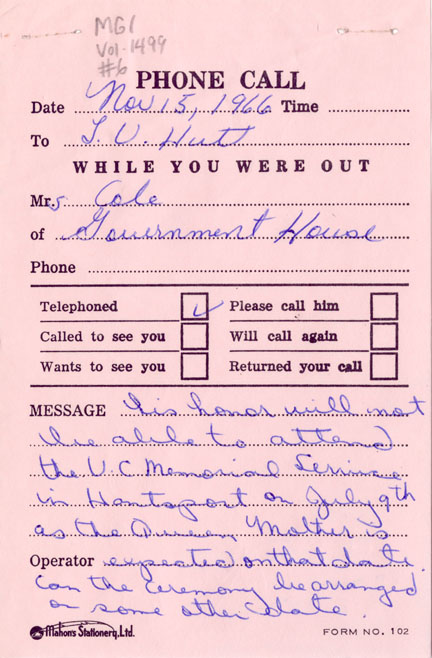 MG1
Vol. 1499
#6
PHONE CALL
Date Nov 15, 1966 Time
To L. V. Hutt
WHILE YOU WERE OUT
Mrs Cole
of Government House
Phone
Telephoned ✓ Please call him
Called to see you Will call again
Wants to see you Returned your call
MESSAGE His honor will not
be able to attend
the V.C Memorial Service
in Hantsport on July 9th
as the Queen Mother is
Operator expected on that date.
Can the ceremony be arranged
on some other date.
Mahon's Stationery, Ltd. FORM NO. 102